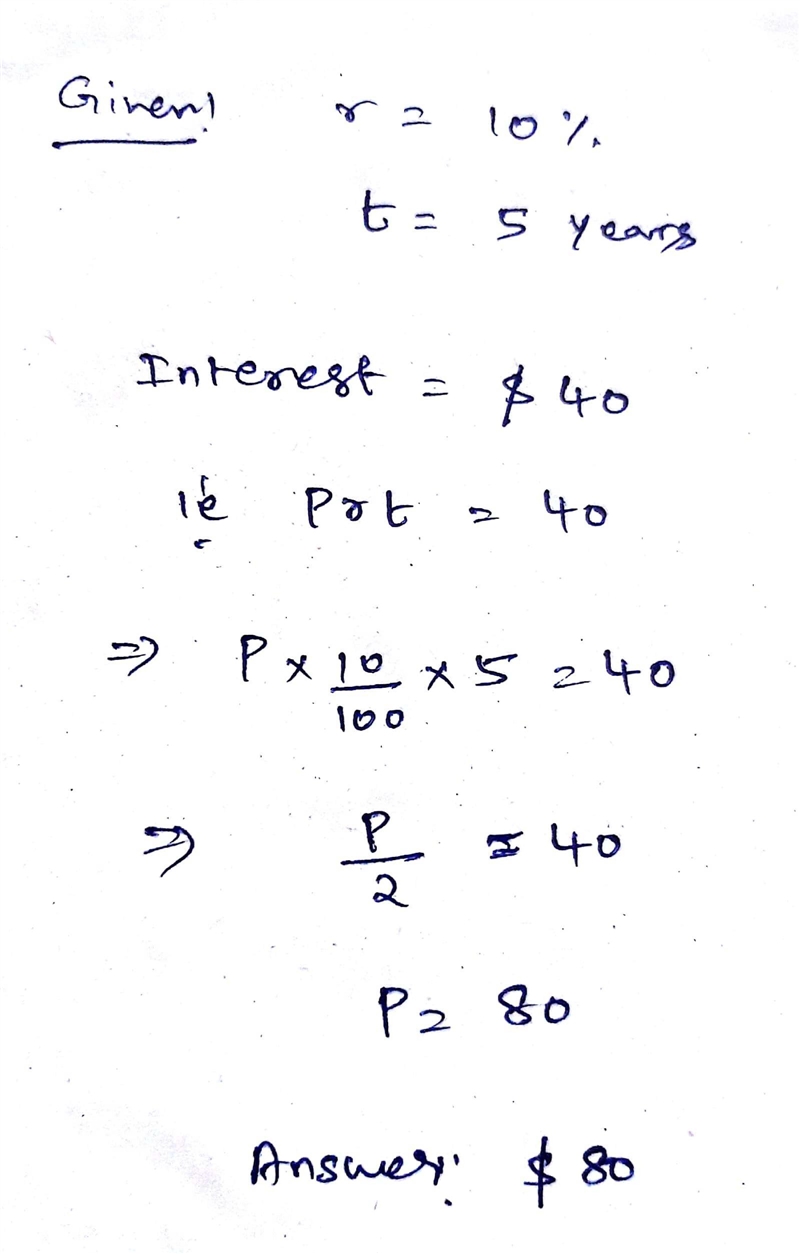 Given: r = 10 %
t = 5 years
Interest = $ 40
ie Prt = 40
⇒ P × 10/100 × 5 = 40
⇒ P/2 = 40
P = 80
Answer: $ 80